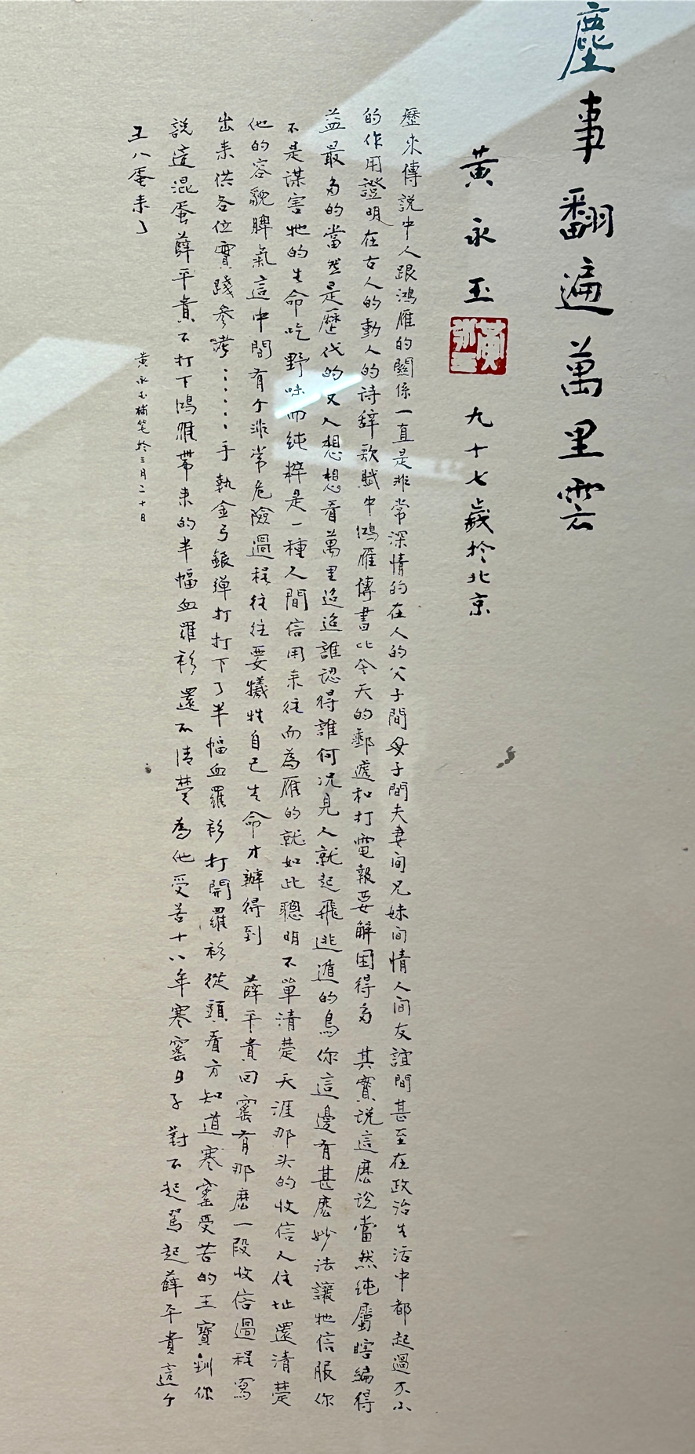 塵事翻遍萬里雲
黃永玉 黃永玉 九十七歲於北京
歷來傳說中人跟鴻雁的關係一直是非常深情的在人的父子間母子間夫妻间兄妹间情人间友誼間甚至在政治生活中都起過不小
的作用證明在古人的動人的诗辞歌賦中鴻雁傳書比今天的郵遞和打電報要解困得多 其實説這麽说當然纯屬瞎编得
益最多的當然是歷代的文人想想看萬里迢迢誰認得誰何况見人就起飛逃遁的鳥你這邊有甚麽妙法讓牠信服你
不是谋害牠的生命吃野味而纯粹是一種人間信用来往而為雁的就如此聰明不單清楚天涯那头的收信人住址還清楚
他的容貌脾氣這中間有个非常危險過程往往要犧牲自己生命才辦得到 薛平貴回窰有那麽一段收信過程寫
出来供各位實踐参考……手執金弓銀弹打打下了半幅血羅衫打開羅衫從頭看方知道寒窰受苦的王寶釧你
説這混蛋薛平貴不打下鴻雁帶来的半幅血羅衫還不清楚為他受苦十八年寒窰日子對不起罵起薛平貴這个
王八蛋来了
黄永玉補笔於三月二十日